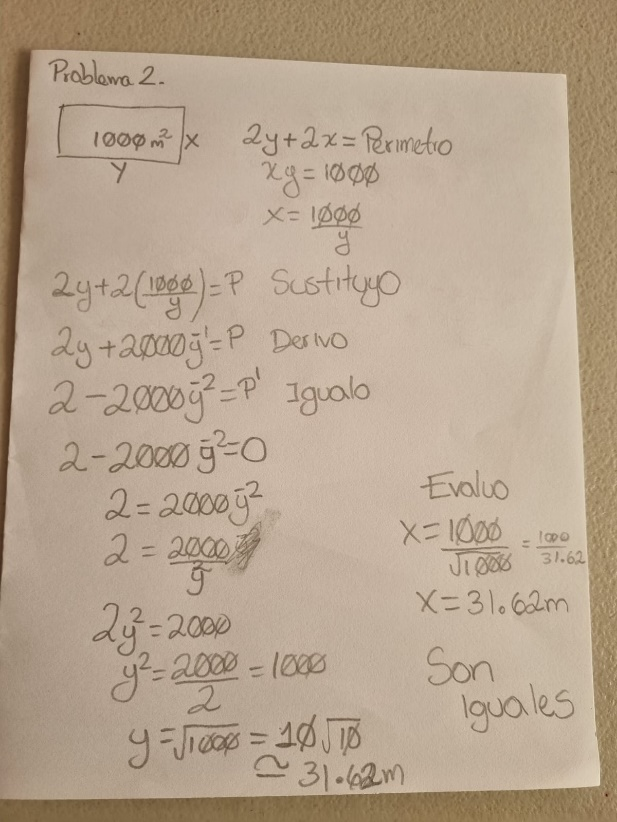 Problema 2.
1000 m² x
y
2y+2x = Perimetro
xy = 1000
x = 1000/y
2y+2(1000/y) = P Sustituyo
2y+2000y⁻¹ = P Derivo
2-2000y⁻² = P' Igualo
2-2000y⁻² = 0
2 = 2000y⁻²
2 = 2000/y²
2y² = 2000
y² = 2000/2 = 1000
y = √1000 = 10√10
≅ 31.62m
Evaluo
x = 1000/√1000 = 1000/31.62
x = 31.62m
Son
Iguales